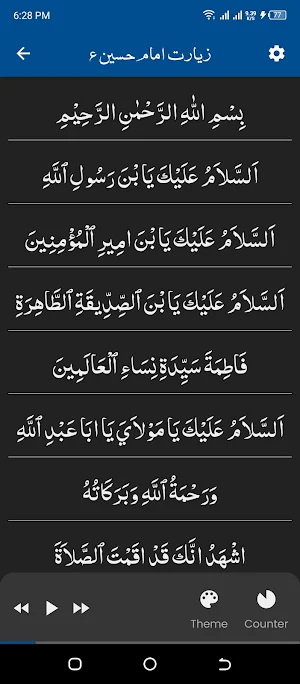 6:28 PM
9.39
KB/S
77
زیارت امام حسین ع
بِسْمِ اللّٰهِ الرَّحْمٰنِ الرَّحِيْمِ
اَلسَّلاَمُ عَلَيْكَ يَا بْنَ رَسُولِ ٱللَّهِ
اَلسَّلاَمُ عَلَيْكَ يَا بْنَ امِيرِ ٱلْمُؤْمِنِينَ
اَلسَّلاَمُ عَلَيْكَ يَا بْنَ ٱلصِّدِّيقَةِ ٱلطَّاهِرَةِ
فَاطِمَةَ سَيِّدَةِ نِسَاءِ ٱلْعَالَمِينَ
اَلسَّلاَمُ عَلَيْكَ يَا مَوْلاَيَ يَا ابَا عَبْدِ ٱللَّهِ
وَرَحْمَةُ ٱللَّهِ وَبَرَكَاتُهُ
اشْهَدُ انَّكَ قَدْ اقَمْتَ ٱلصَّلاَةَ
Theme
Counter